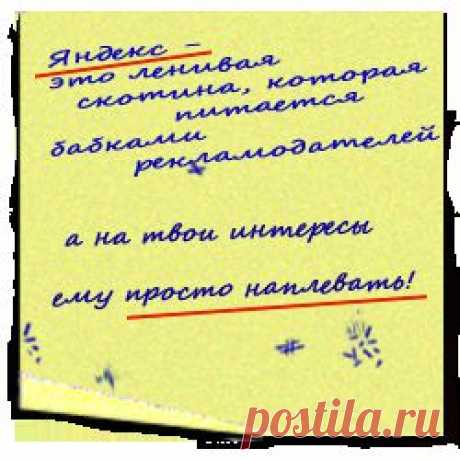 Яндекс –
это ленивая
скотина, которая
питается
бабками
рекламодателей
а на твои интересы
ему просто наплевать!
postila.ru